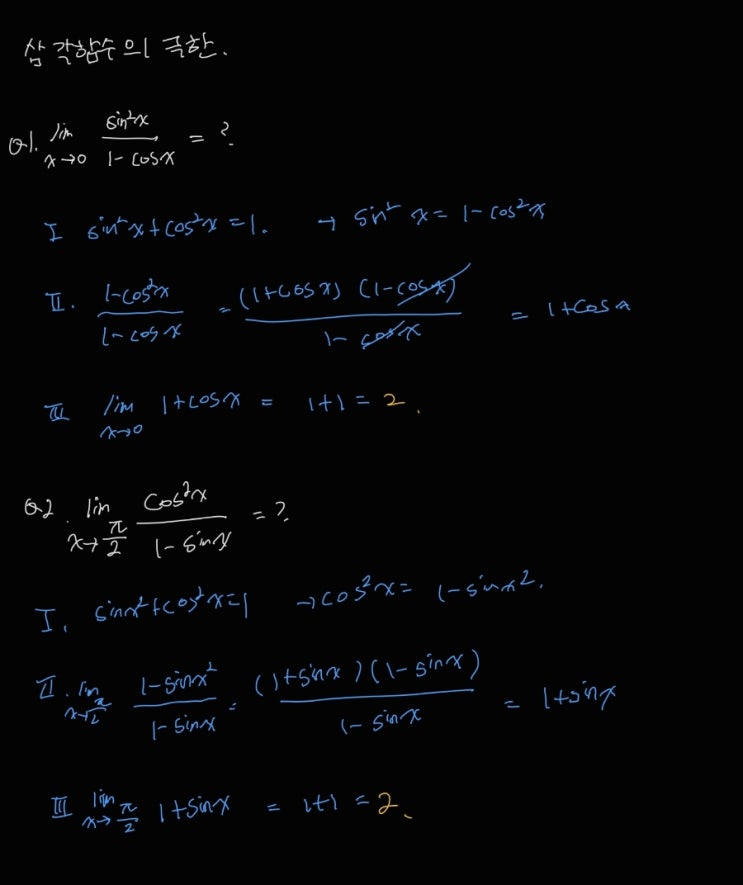 삼각함수의 극한.
Q1. lim x→0 sin²x / 1-cosx = ?
I sin²x+cos²x=1. → sin²x=1-cos²x
II. 1-cos²x / 1-cosx = (1+cosx)(1-cosx) / 1-cosx = 1+cosx
III lim x→0 1+cosx = 1+1=2.
Q2. lim x→π/2 cos²x / 1-sinx = ?
I. sinx²+cos²x=1 → cos²x= 1-sinx².
II. lim x→π/2 1-sinx² / 1-sinx = (1+sinx)(1-sinx) / 1-sinx = 1+sinx
III lim x→π/2 1+sinx = 1+1=2.